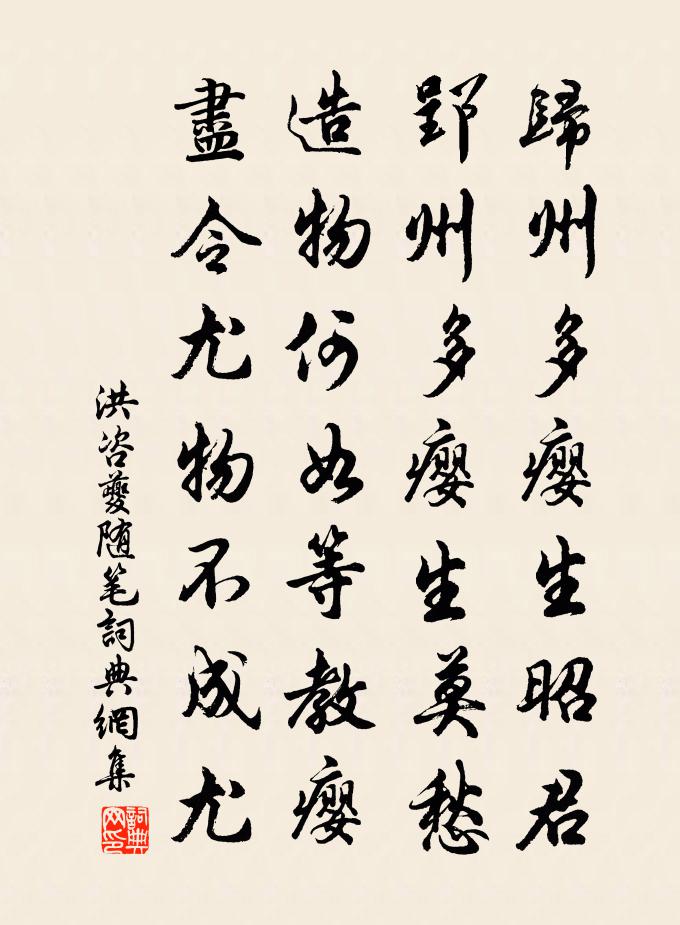 歸州多癭生昭君
郢州多癭生莫愁
造物何如等教癭
盡令尤物不成尤
洪咨夔随笔詞典網集
詞典網印